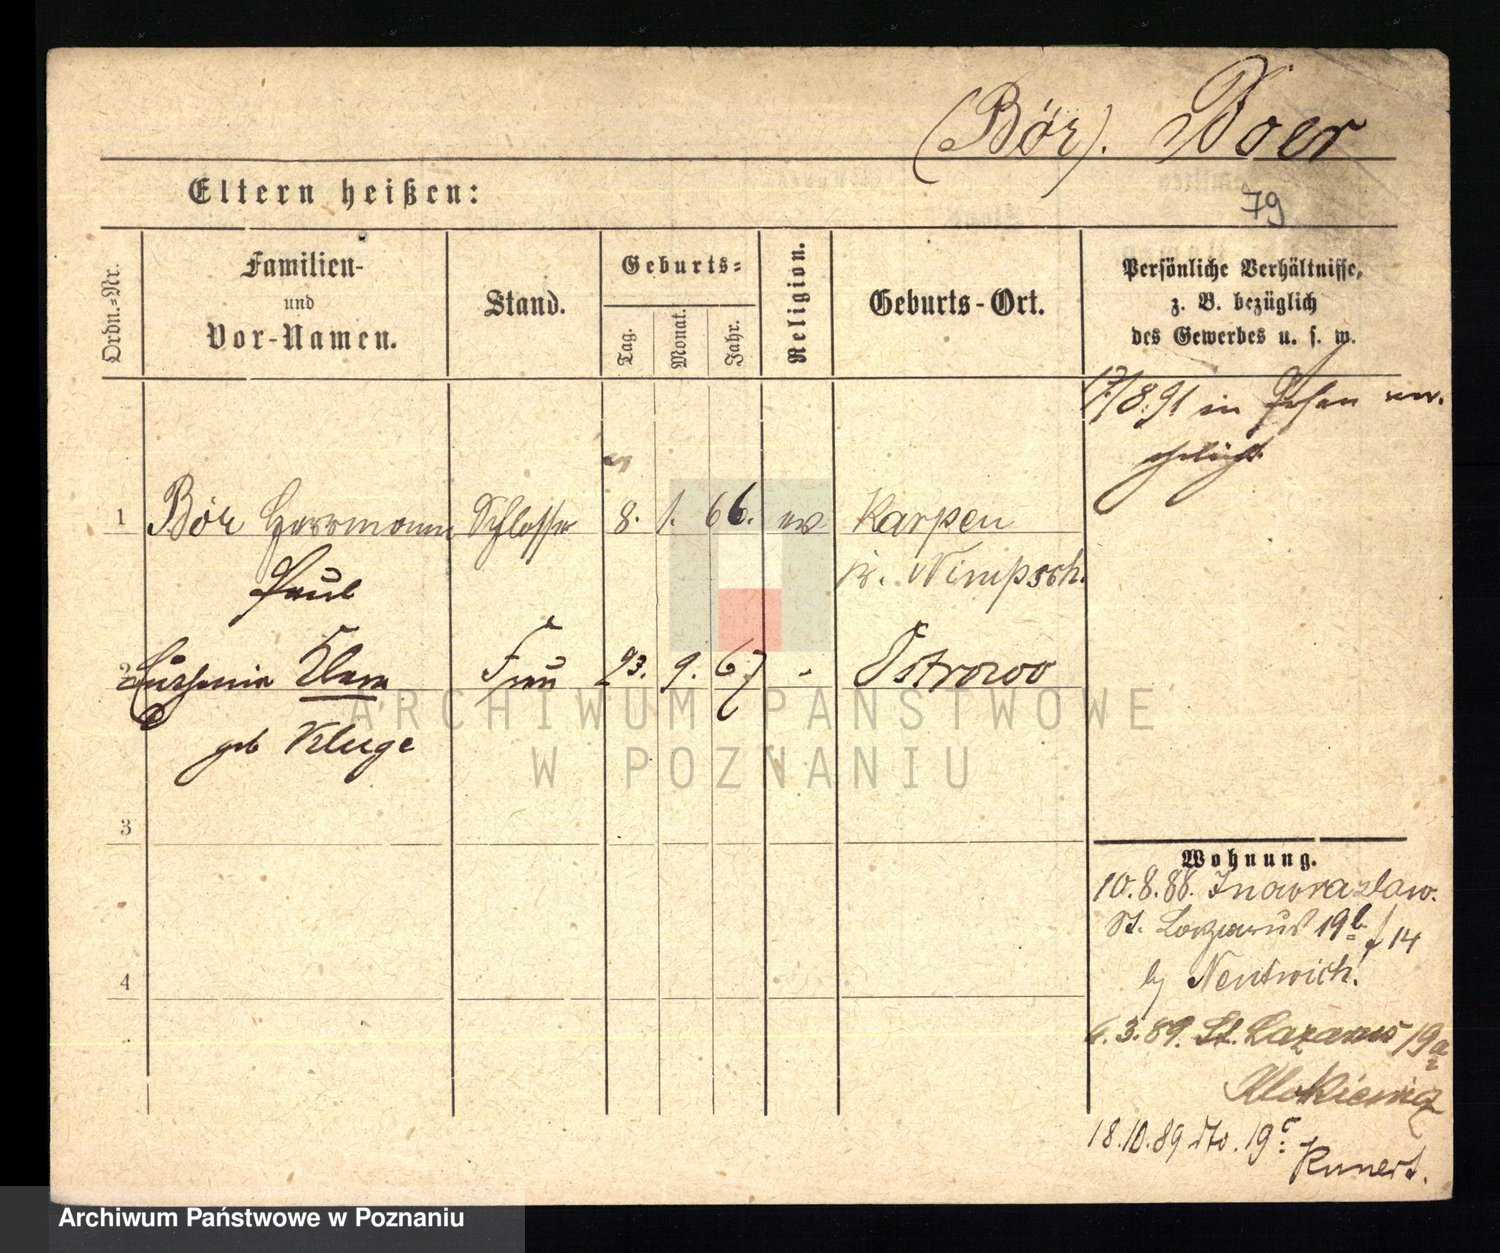 (Bör). Boer
Eltern heißen:
79
Ordn.-Nr.
Familien-
und
Vor-Namen.
Stand.
Geburts-
Tag.
Monat.
Jahr.
Religion.
Geburts-Ort.
Persönliche Verhältnisse,
z. B. bezüglich
des Gewerbes u. s. w.
17/8.91 in Posen ver-
ehelicht
1 Bör Herrmann Schlosser 8. 1. 66. ev Karpen
Paul Kr. Nimpsch.
2 Eugenie Klara Frau 23. 9. 67 - Ostrowo
geb Kluge
3
4
Wohnung.
10.8.88. Inowrazlaw.
St. Lazarus 19b / 14
by Nentwich.
6.3.89. St. Lazarus 19a
18.10.89 dto. 19c
Kunert.
ARCHIWUM PAŃSTWOWE
W POZNANIU
Archiwum Państwowe w Poznaniu